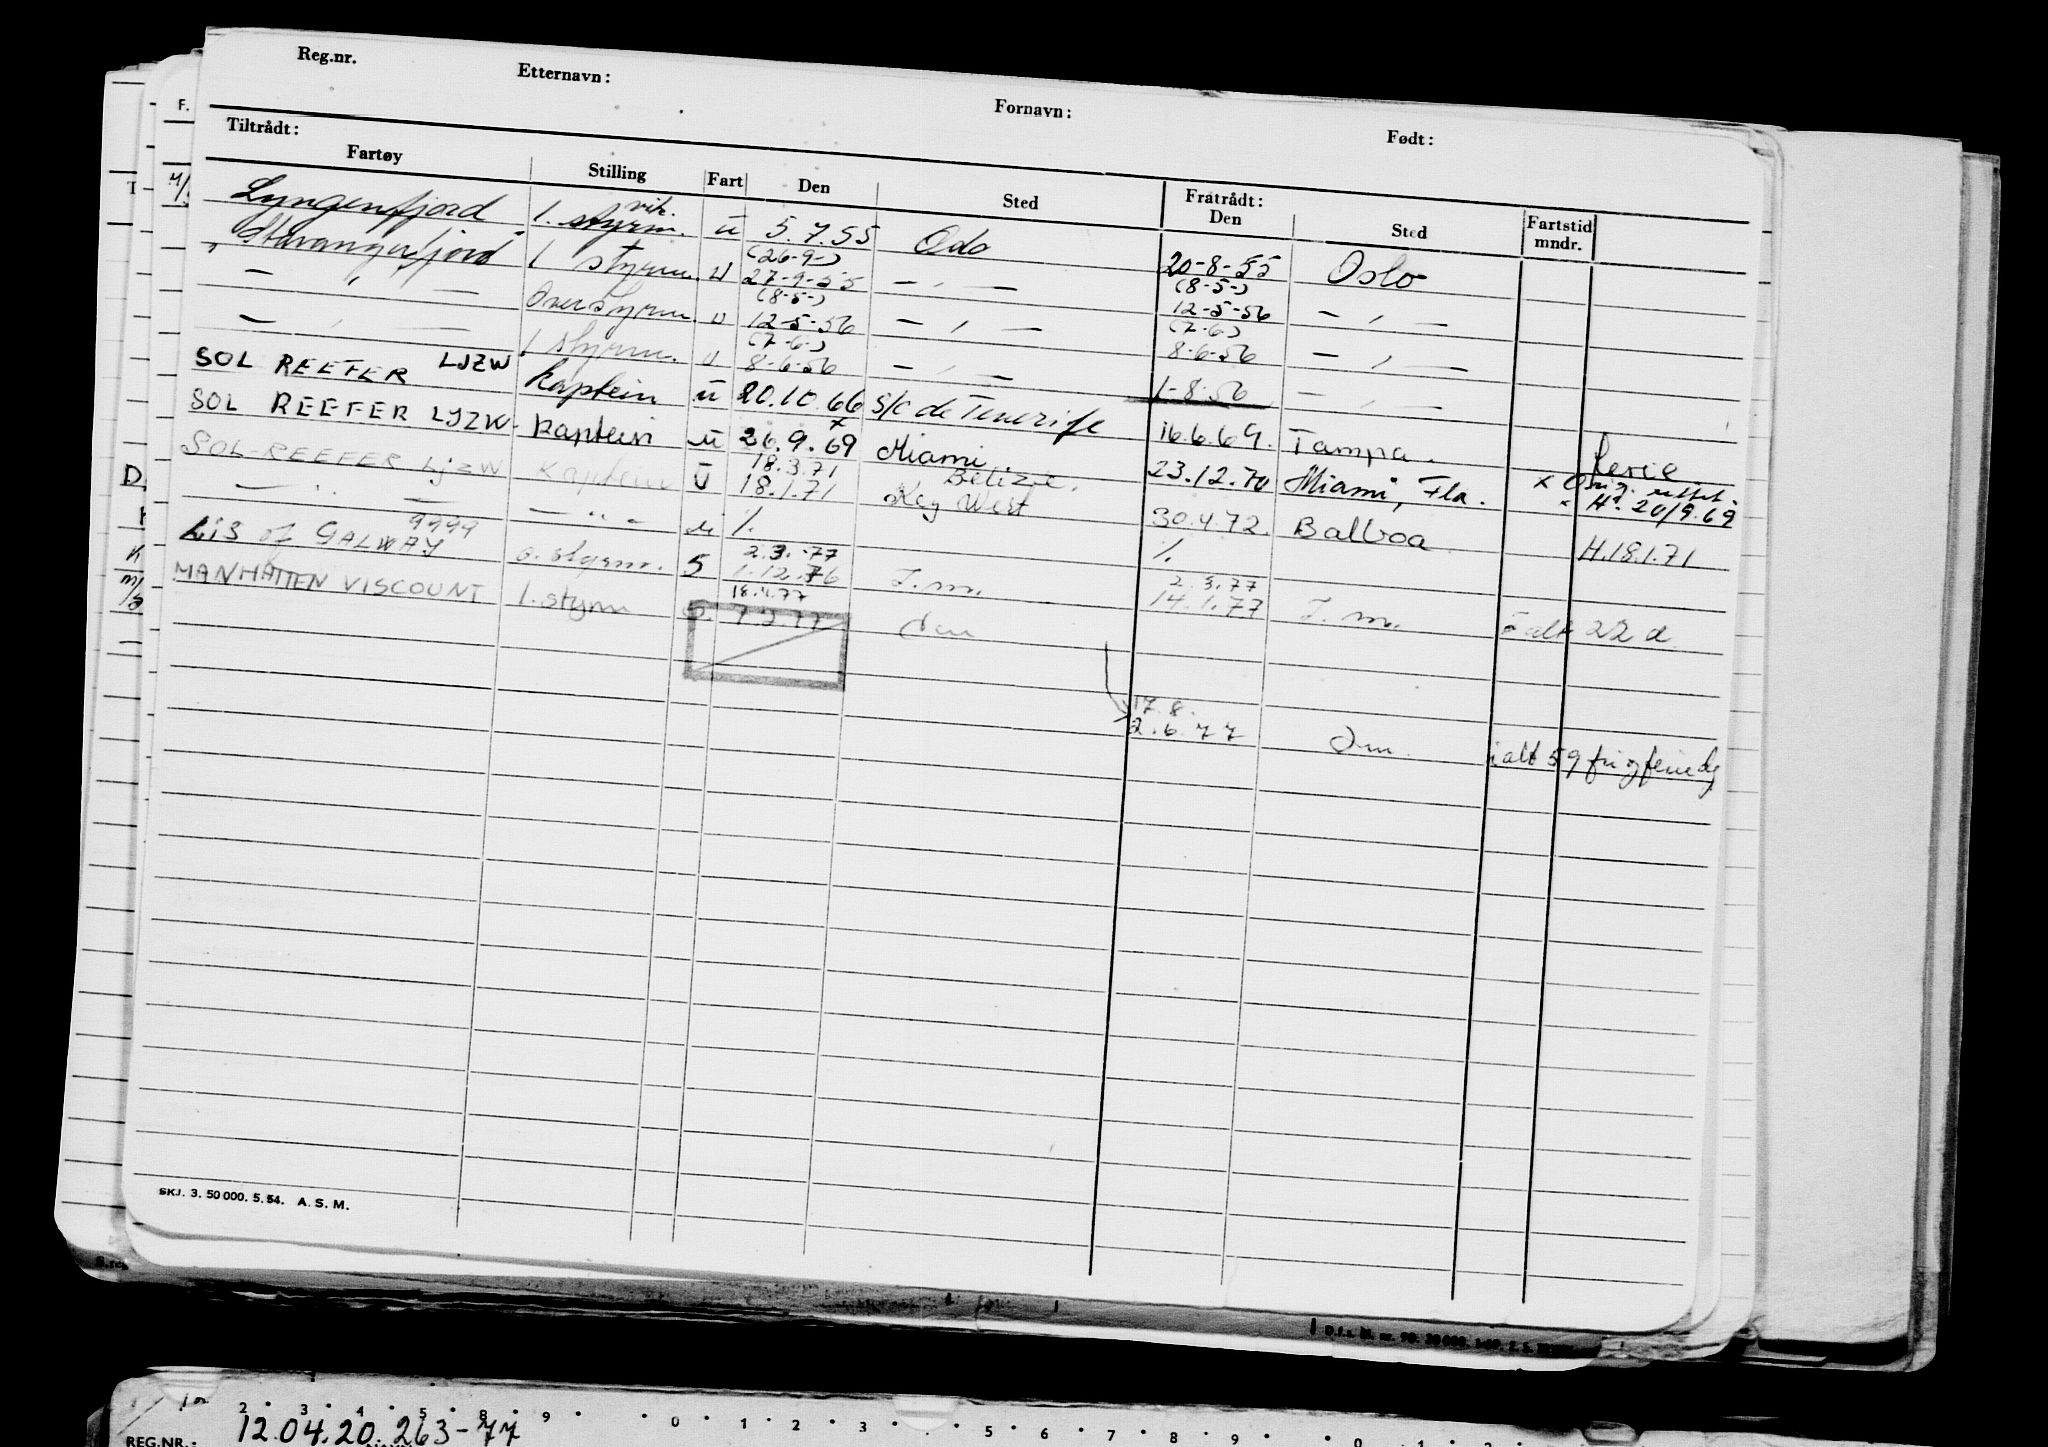 Reg.nr. Etternavn: Fornavn: Født:
Tiltrådt: Fratrådt:
Fartøy Stilling Fart Den Sted Den Sted Fartstid mndr.
Lyngenfjord 1. styrm. vik. u 5.7.55 Oslo 20-8-55 Oslo
(26-9-) (8-5-)
Stavangerfjord 1 styrm. u 27-9-55 — " — 12-5-56 — " —
(8-5-) (7-6-)
— " — Overstyrm. u 12-5-56 — " — 8-6-56 — " —
(7-6-)
— " — 1 styrm. u 8-6-56 — " — 1-8-56 — " —
SOL REEFER LJZW kaptein u 20.10.66 S/C de Tenerife 16.6.69. Tampa. ferie
SOL REEFER LJZW. kaptein u 26.9.69 x Miami 23.12.70 Miami, Fla. x
x H. 20/9.69
18.3.71 Belize.
SOL-REEFER LJZW kaptein U 18.1.71 Key West 30.4.72. Balboa H.18.1.71
— " — — " — u %. %.
9999 2.3.77 2.3.77
LIS of GALWAY o. styrm. 5 1.12.76 I.m. 14.1.77 I.m. I alt 22 d
18.4.77
MANHATTEN VISCOUNT 1. styrm
17.8.
2.6.77 I m. i alt 59 fri
SKJ. 3. 50 000. 5. 54. A. S. M.
REG.NR.: 12.04.20.263-77